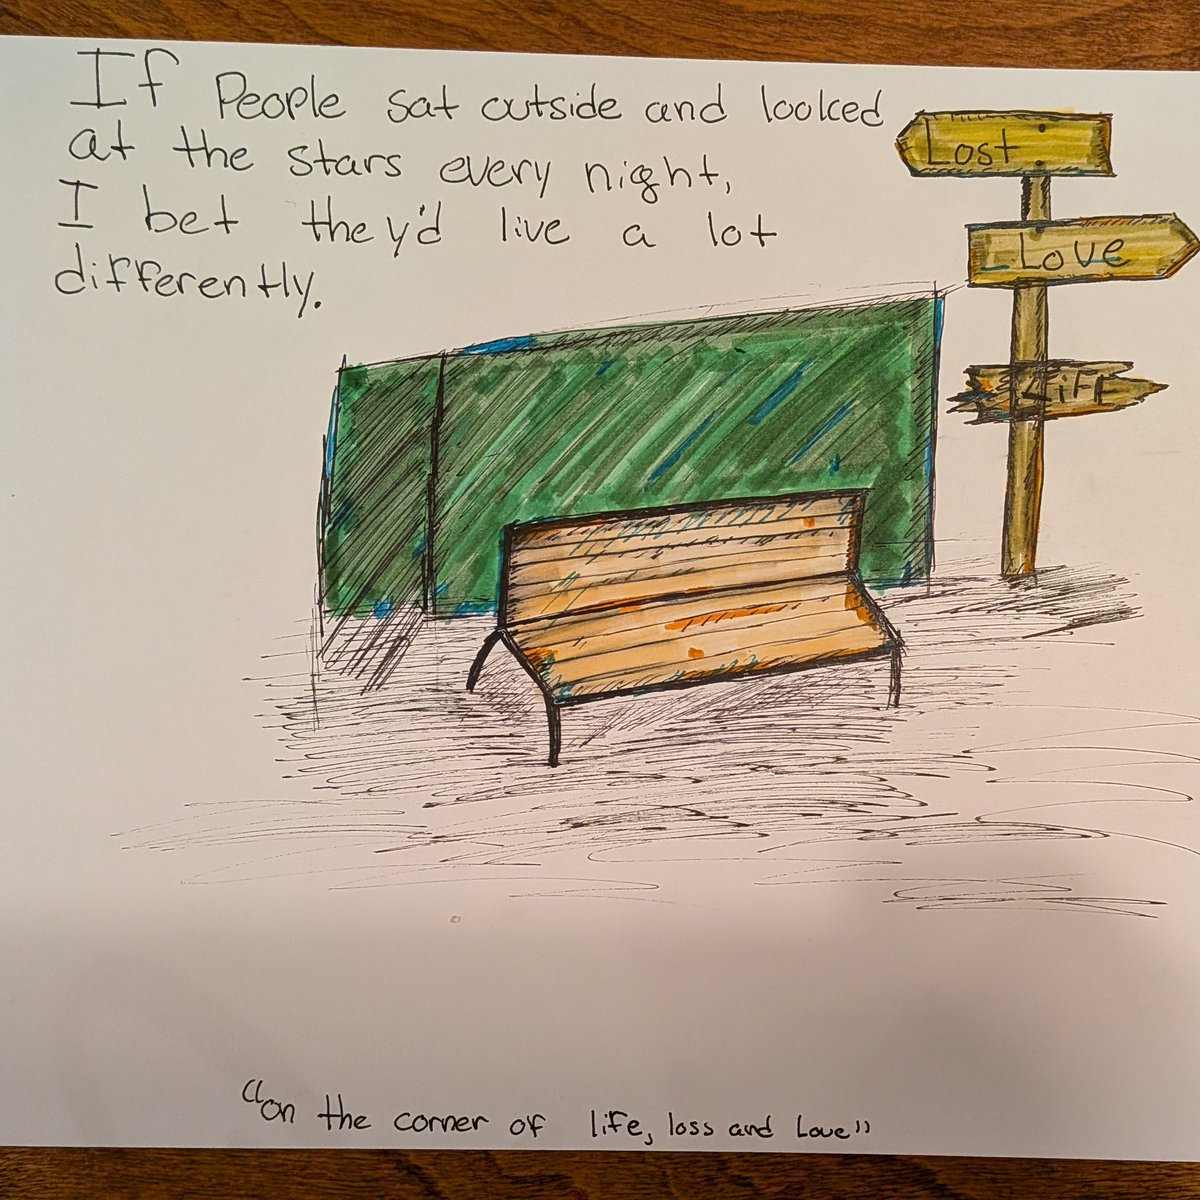 If People sat outside and looked
at the stars every night,
I bet they'd live a lot
differently.
Lost
Love
Life
"on the corner of life, loss and Love"